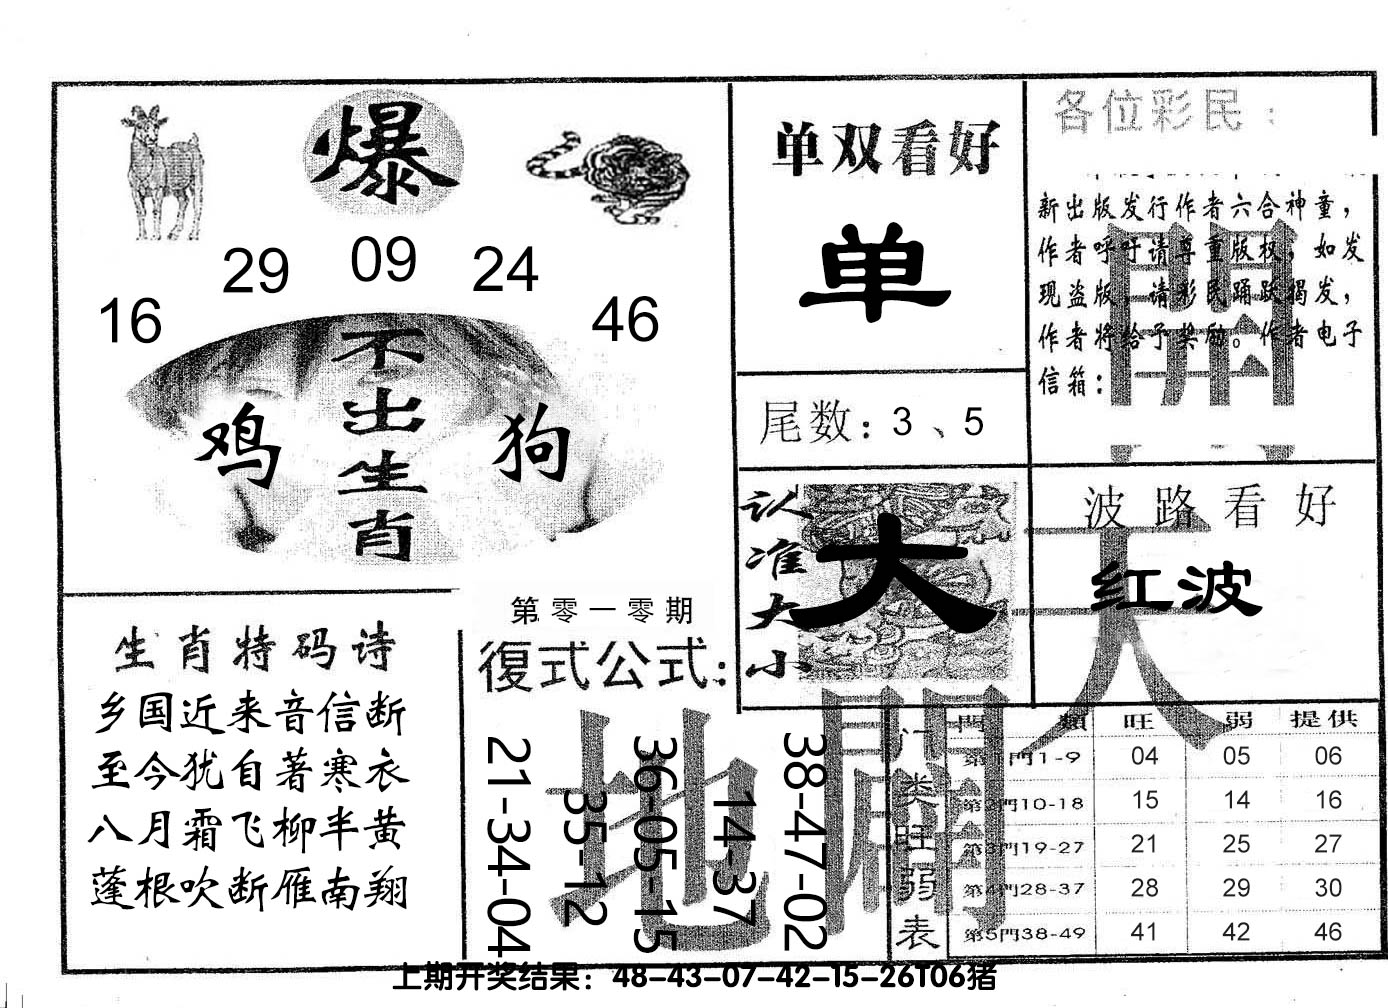 爆
29 09 24
16 46
不出生肖
鸡 狗
单双看好
单
尾数：3、5
各位彩民：
新出版发行作者六合神童，
作者呼吁请尊重版权，如发
现盗版，请彩民踊跃揭发，
作者将给予奖励。作者电子
信箱：
認准大小
大
波路看好
红波
生肖特码诗
乡国近来音信断
至今犹自著寒衣
八月霜飞柳半黄
蓬根吹断雁南翔
第零一零期
復式公式：
21-34-04
35-12
36-05-15
14-37
38-47-02
天
開
地
門类旺弱表
門類 旺 弱 提供
第1門1-9 04 05 06
第2門10-18 15 14 16
第3門19-27 21 25 27
第4門28-37 28 29 30
第5門38-49 41 42 46
上期开奖结果：48-43-07-42-15-26T06猪